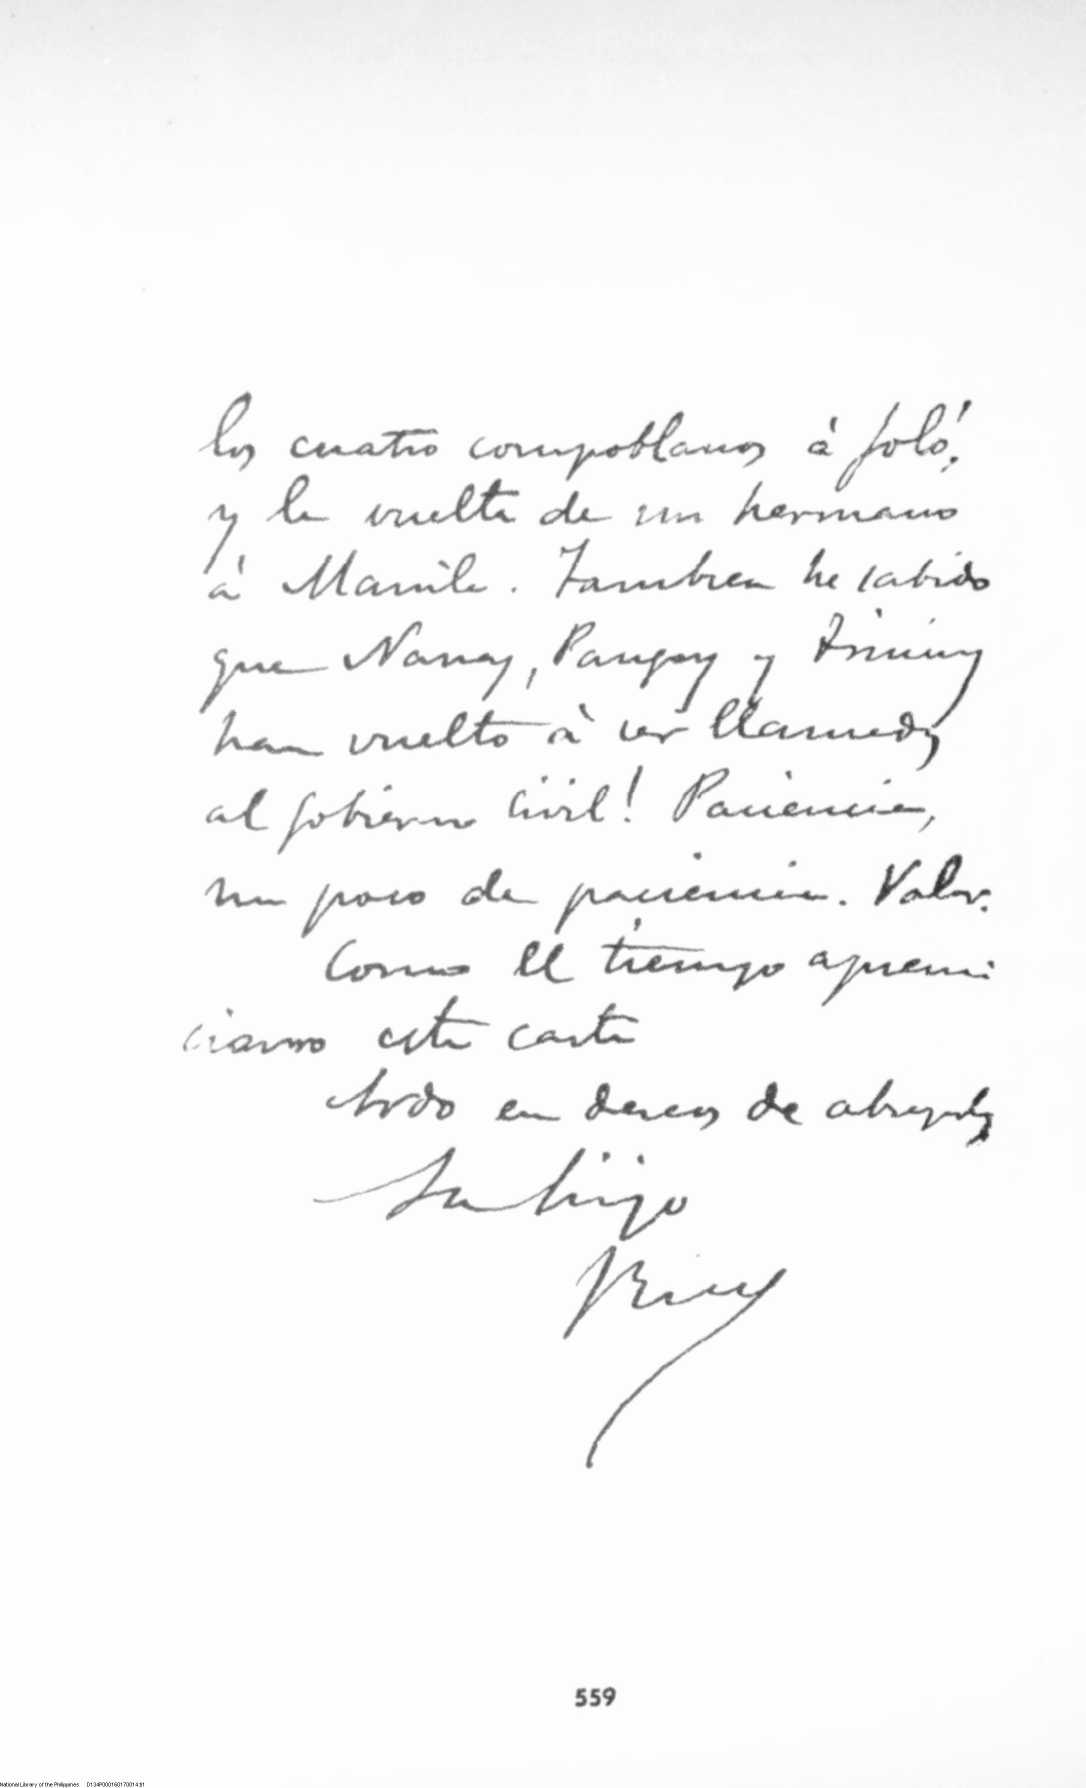 los cuatro compoblanos á Joló!
y la vuelta de un hermano
á Manila. Tambien he sabido
que Nanay, Pangoy y Trining
han vuelto á ser llamados
al gobierno civil! Paciencia,
un poco de paciencia. Valor.
Como el tiempo apremi
ciarno esta carta
ardo en deseos de abrazarles
Su hijo
Rizal
559
National Library of the Philippines